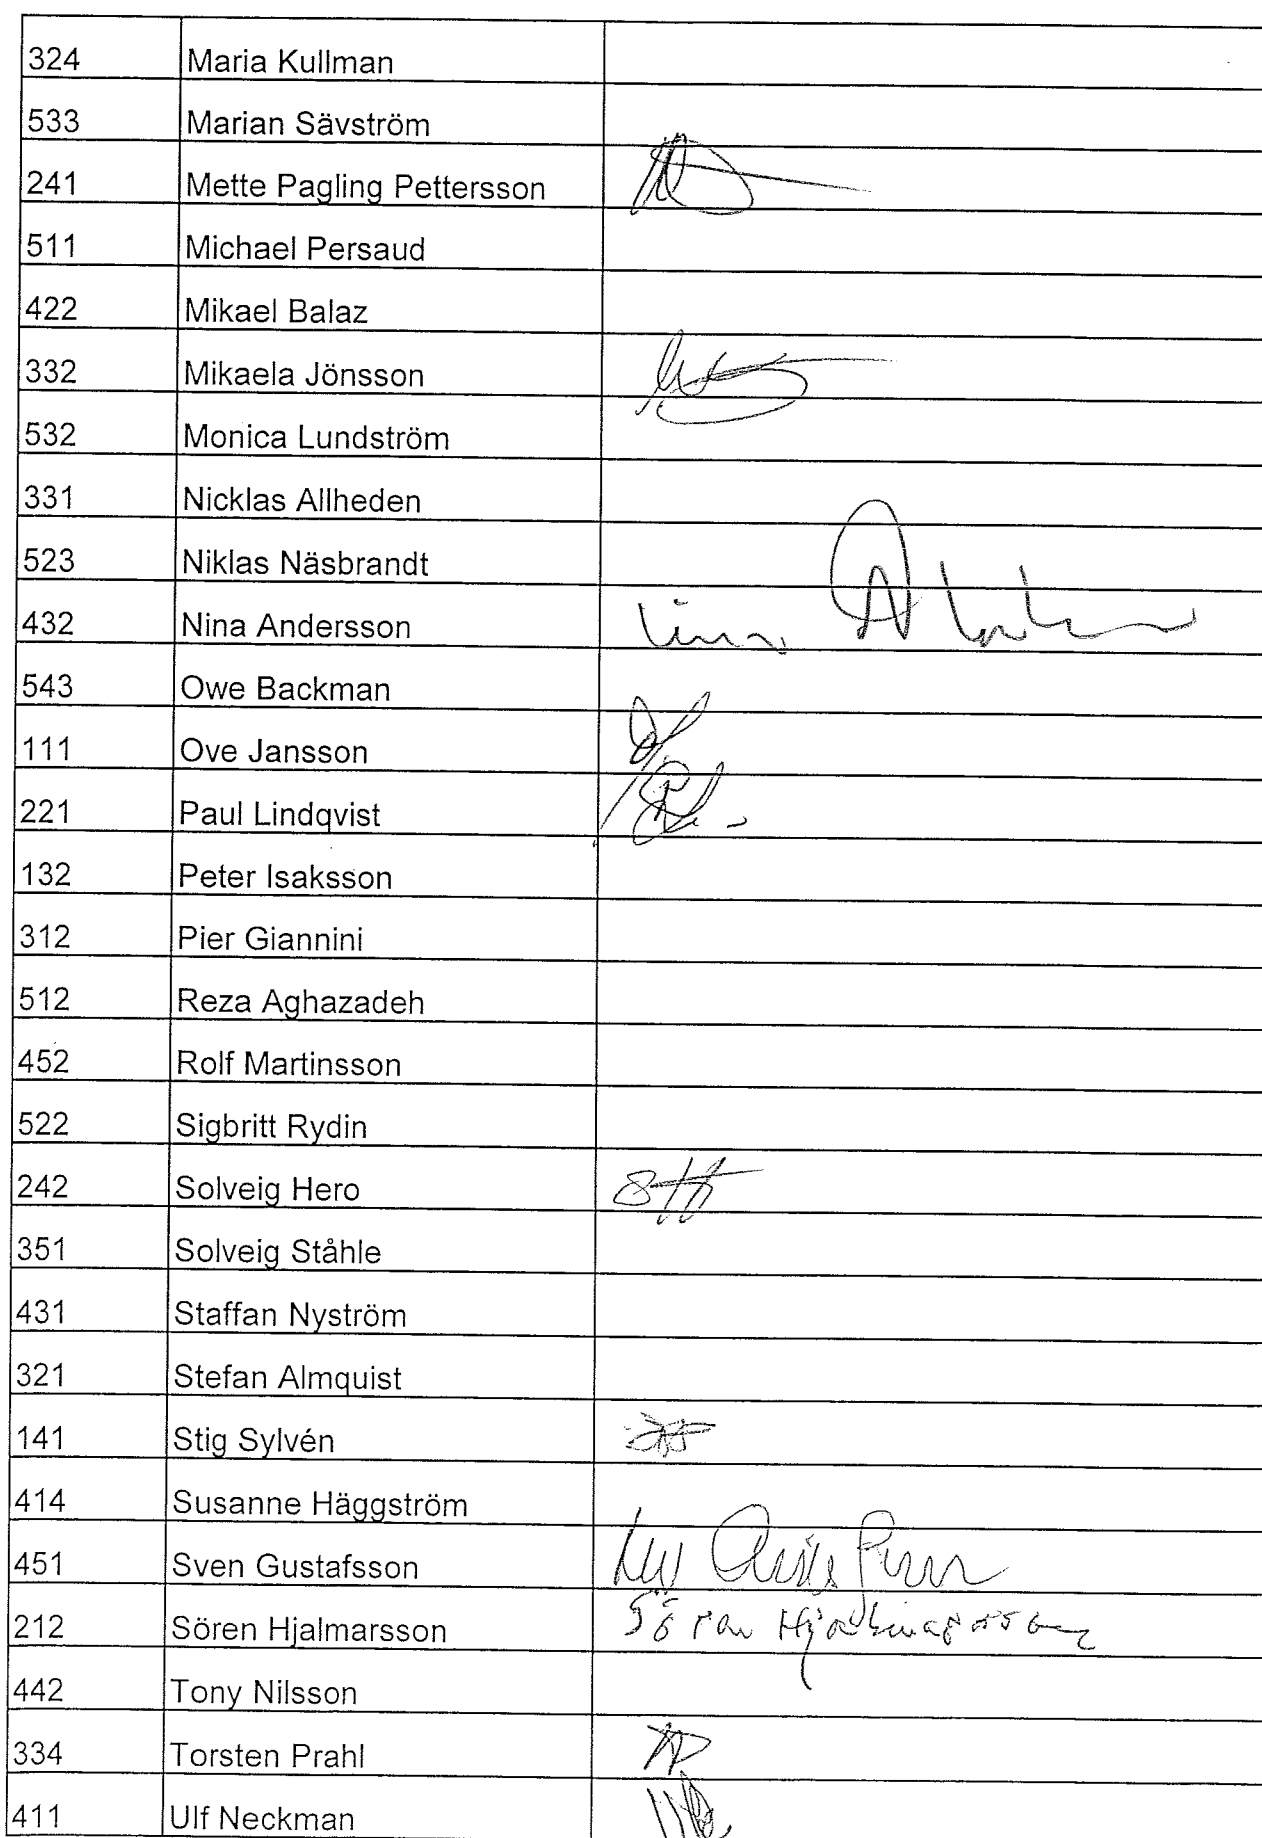 324 Maria Kullman
533 Marian Sävström
241 Mette Pagling Pettersson
511 Michael Persaud
422 Mikael Balaz
332 Mikaela Jönsson
532 Monica Lundström
331 Nicklas Allheden
523 Niklas Näsbrandt
432 Nina Andersson
543 Owe Backman
111 Ove Jansson
221 Paul Lindqvist
132 Peter Isaksson
312 Pier Giannini
512 Reza Aghazadeh
452 Rolf Martinsson
522 Sigbritt Rydin
242 Solveig Hero
351 Solveig Ståhle
431 Staffan Nyström
321 Stefan Almquist
141 Stig Sylvén
414 Susanne Häggström
451 Sven Gustafsson
212 Sören Hjalmarsson Sören Hjalmarsson
442 Tony Nilsson
334 Torsten Prahl
411 Ulf Neckman